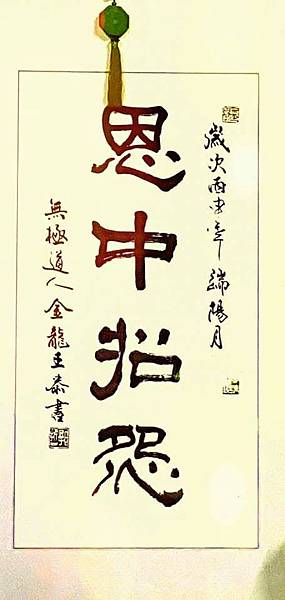 歲次丙申年 端陽月
恩中招怨
無極道人金龍王泰書